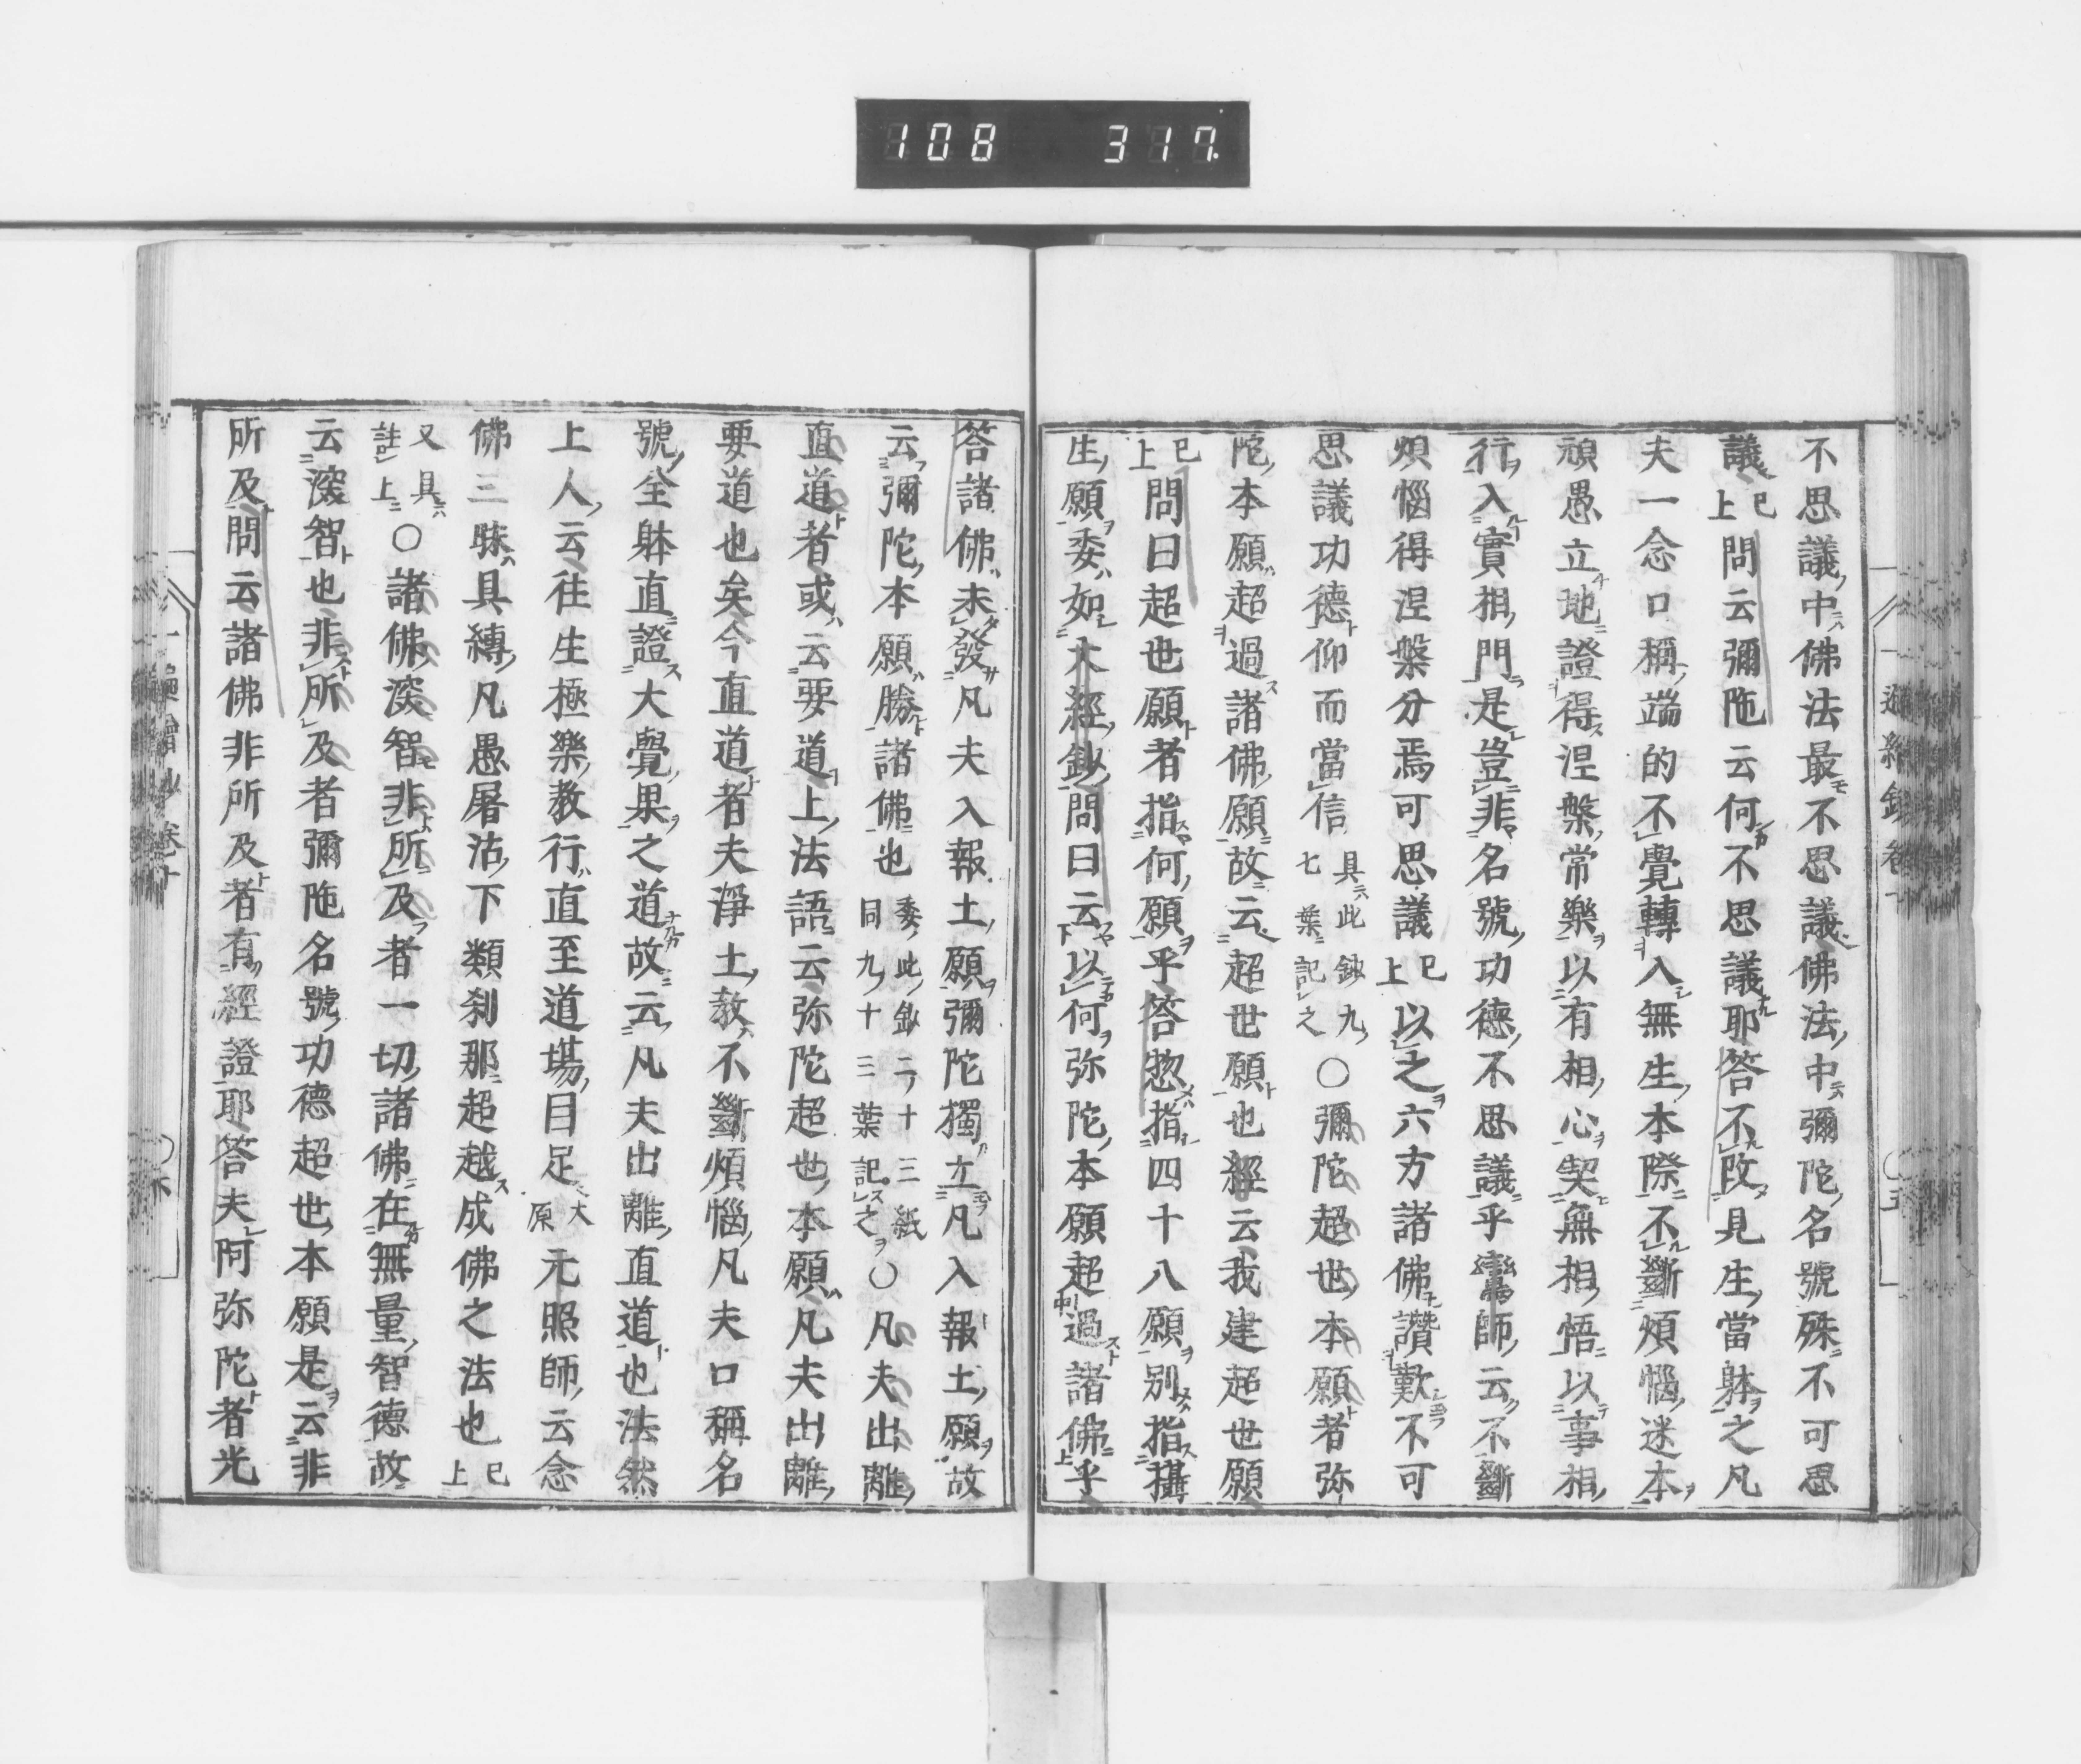 108 317.
不思議中佛法最不思議佛法中彌陀名號殊不可思
議已上問云彌陁云何不思議耶答不改見生當躰之凡
夫一念口稱端的不覺轉入無生本際不斷煩惱迷本
頑愚立地證得涅槃常樂以有相心契無相悟以事相
行入實相門是豈非名號功德不思議乎鸞師云不斷
煩惱得涅槃分焉可思議已上以之六方諸佛讚歎不可
思議功德仰而當信具此鈔九七葉記之○彌陀超世本願者弥
陀本願超過諸佛願故云超世願也經云我建超世願
已上問曰超世願者指何願乎答惣指四十八願別指攝
生願委如大經鈔問曰云以何弥陀本願超過諸佛乎
答諸佛未發凡夫入報土願彌陀獨立凡入報土願故
云彌陀本願勝諸佛也委此鈔二十三紙同九十三葉記之○凡夫出離
直道者或云要道上法語云弥陀超世本願凡夫出離
要道也矣今直道者夫淨土教不斷煩惱凡夫口稱名
號全躰直證大覺果之道故云凡夫出離直道也法然
上人云往生極樂教行直至道塲目足大原元照師云念
佛三昧具縛凡愚屠沽下類刹那超越成佛之法也已上
又具註上○諸佛深智非所及者一切諸佛在無量智德故
云深智也非所及者彌陁名號功德超世本願是云非
所及問云諸佛非所及者有經證耶答夫阿弥陀者光